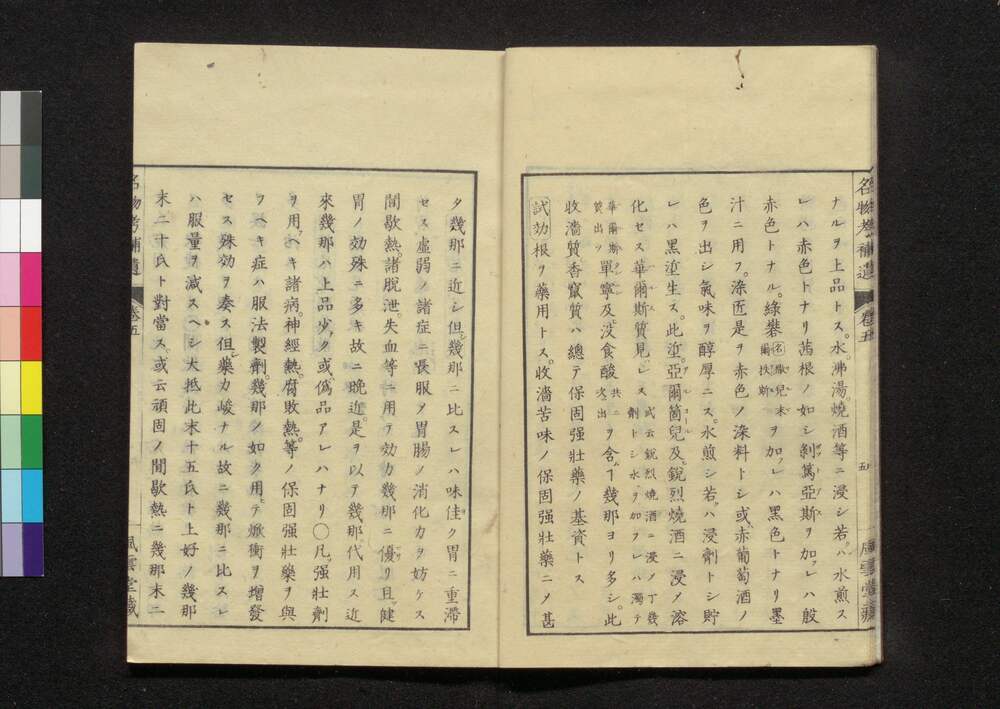 名物考補遺 卷五 五 風雲堂藏
ナルヲ上品トス。水。沸湯。燒酒等ニ浸シ若。ハ水煎ス
レハ赤色トナリ茜根ノ如シ剝篤亞斯ヲ加。レハ殷
赤色トナル。綠礬名撒兒末爾扶斯ヲ加。レハ黑色トナリ墨
汁ニ用フ。染匠是ヲ赤色ノ染料トシ或。赤葡萄酒ノ
色ヲ出シ氣味ヲ醇厚ニス。水煎シ若。ハ浸劑トシ貯
レハ黑塗生ス。此塗。亞爾箇兒及。銳烈燒酒ニ浸メ溶
化セス華爾斯質見。レス或云銳烈燒酒ニ浸ノ丁幾劑トシ水ヲ加フレハ濁テ
華爾斯質出ツ單寧及。沒食酸共ニ次出ヲ含ムヿ幾那ヨリ多シ。此
收濇質香竄質ハ總テ保固强壯藥ノ基資トス
試効根ヲ藥用トス。收濇苦味ノ保固强壯藥ニメ甚
タ幾那ニ近シ但。幾那ニ比スレハ味佳ク胃ニ重滯
セス虛弱ノ諸症ニ長服メ胃腸ノ消化力ヲ妨ケス
間歇熱。諸脫泄。失血等ニ用テ効力幾那ニ優リ且健
胃ノ効殊ニ多キ故ニ晩近是ヲ以テ幾那。代用ス近
來幾那ハ上品少。ク或僞品アレハナリ〇凡。强壯劑
ヲ用。ヘキ諸病。神經熱。腐敗熱。等ノ保固强壯藥ヲ與
フヘキ症ハ服法製劑。幾那ノ如ク用。テ焮衝ヲ增發
セス殊効ヲ奏ス但。藥力峻ナル故ニ幾那ニ比スレ
ハ服量ヲ減スヘシ大抵此末十五氏ト上好ノ幾那
末二十氏ト對當ス。或云頑固ノ間歇熱ニ幾那末二
名物考補遺 卷五 風雲堂藏